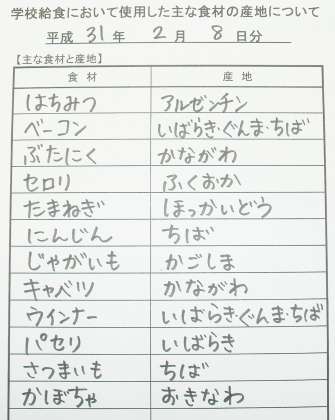 学校給食において使用した主な食材の産地について
平成 31 年 2 月 8 日分
【主な食材と産地】
食材 産地
はちみつ アルゼンチン
ベーコン いばらき・ぐんま・ちば
ぶたにく かながわ
セロリ ふくおか
たまねぎ ほっかいどう
にんじん ちば
じゃがいも かごしま
キャベツ かながわ
ウインナー いばらき・ぐんま・ちば
パセリ いばらき
さつまいも ちば
かぼちゃ おきなわ